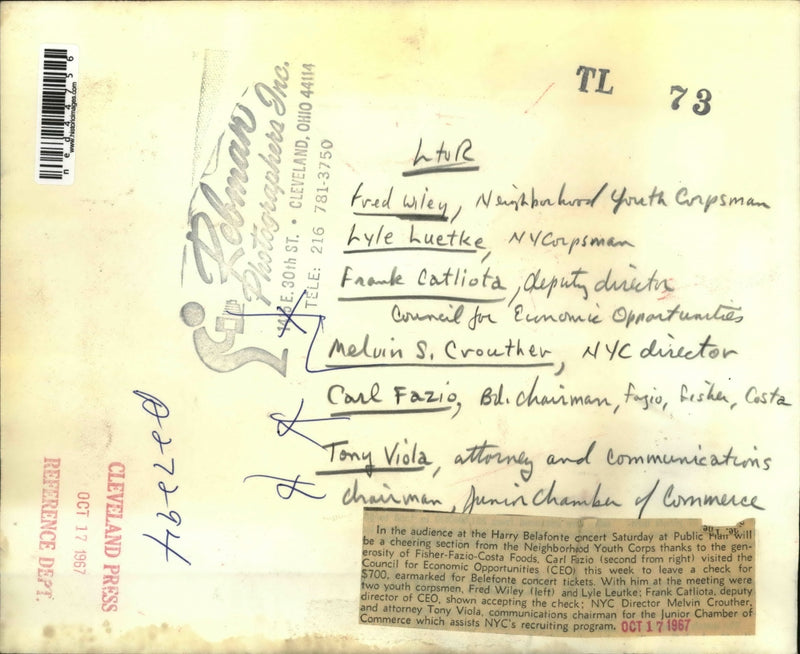 ned44756
www.historicimages.com
Rebman
Photographers Inc.
E. 30th ST. • CLEVELAND, OHIO 44114
TELE: 216 781-3750
TL 73
L to R
Fred Wiley, Neighborhood Youth Corpsman
Lyle Luetke, NYCorpsman
Frank Catliota, deputy director
Council for Economic Opportunities
Melvin S. Crouther, NYC director
Carl Fazio, Bd. chairman, Fazio, Fisher, Costa
Tony Viola, attorney and communications
chairman, Junior Chamber of Commerce
CLEVELAND PRESS
OCT 17 1967
REFERENCE DEPT.
In the audience at the Harry Belafonte concert Saturday at Public Hall will
be a cheering section from the Neighborhood Youth Corps thanks to the gen-
erosity of Fisher-Fazio-Costa Foods. Carl Fazio (second from right) visited the
Council for Economic Opportunities (CEO) this week to leave a check for
$700, earmarked for Belefonte concert tickets. With him at the meeting were
two youth corpsmen, Fred Wiley (left) and Lyle Leutke; Frank Catliota, deputy
director of CEO, shown accepting the check; NYC Director Melvin Crouther,
and attorney Tony Viola, communications chairman for the Junior Chamber of
Commerce which assists NYC's recruiting program. OCT 17 1967